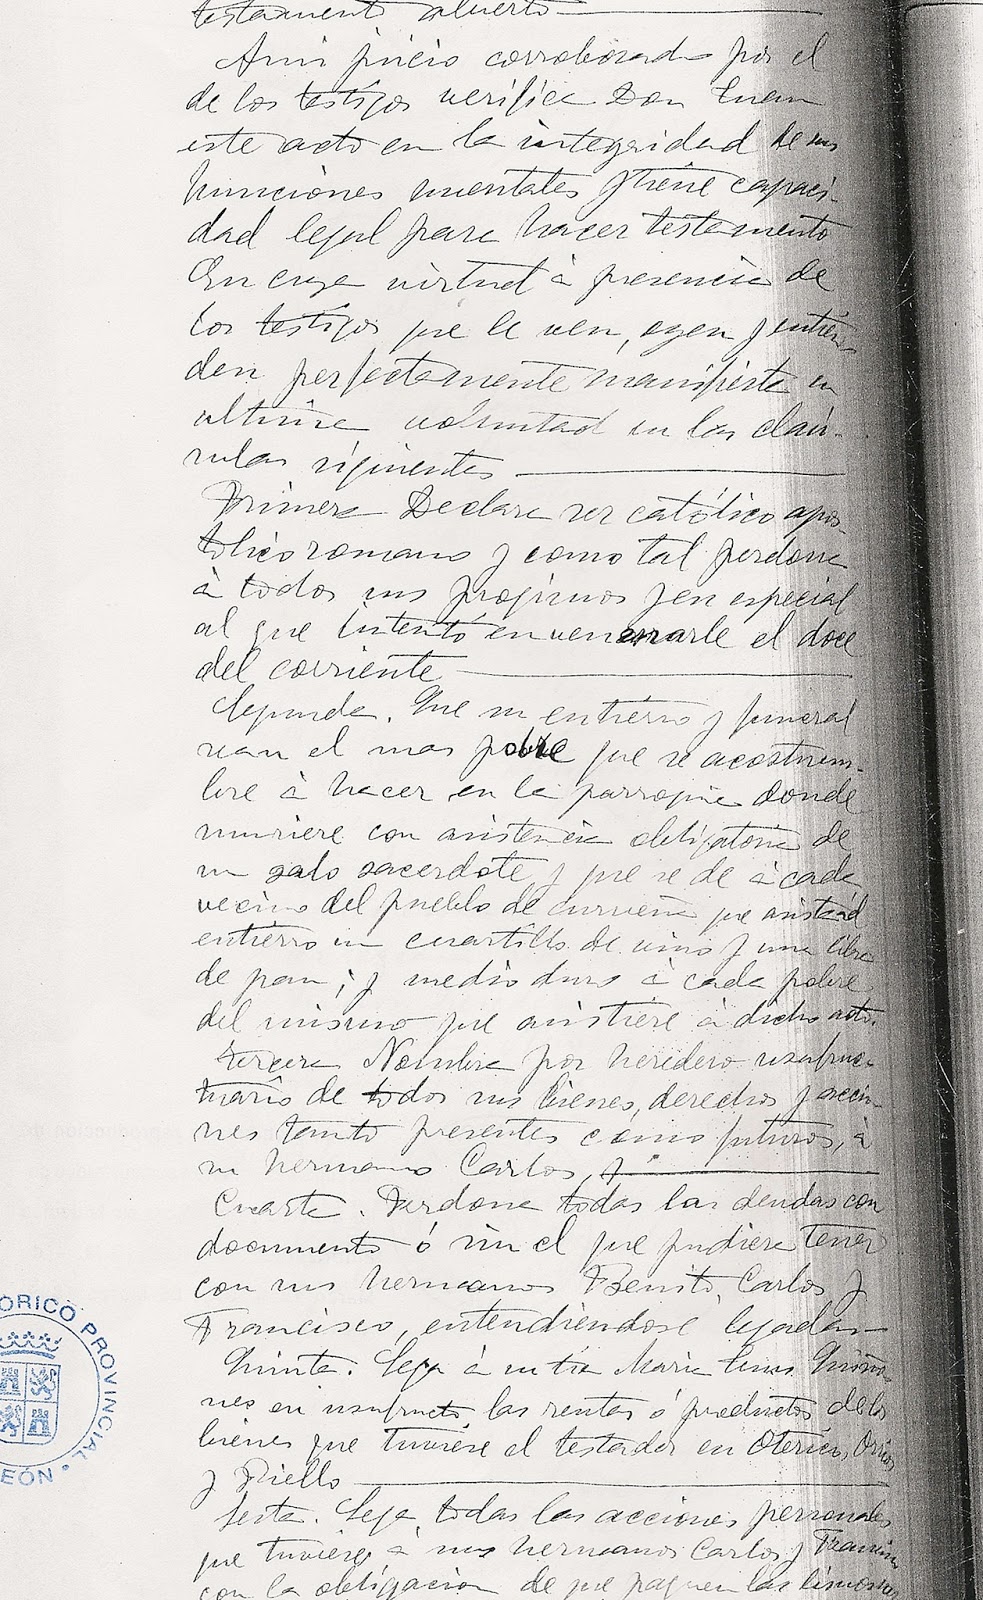 testamento abierto
A mi juicio corroborado por el
de los testigos verifica Don Juan
este acto en la integridad de sus
funciones mentales y tiene capaci-
dad legal para hacer testamento
En cuya virtud á presencia de
los testigos que le ven, oyen y entien-
den perfectamente manifiesta su
ultima voluntad en las cláu-
sulas siguientes
Primera Declara ser católico apos
tolico romano y como tal perdona
á todos sus projimos y en especial
al que intentó envenenarle el doce
del corriente
Segunda. Que su entierro y funeral
sean el mas pobre que se acostum-
bre á hacer en la parroquia donde
muriere con asistencia obligatoria de
un solo sacerdote y que se dé á cada
vecino del pueblo de Curueña que asista al
entierro un cuartillo de vino y una libra
de pan; y medio duro á cada pobre
del mismo que asistiere á dicho acto.
Tercera Nombra por heredero usufruc-
tuario de todos sus bienes, derechos y accio-
nes tanto presentes como futuros, á
su hermano Carlos, y
Cuarta. Perdona todas las deudas con
documento ó sin el que pudiera tener
con sus hermanos Benito, Carlos y
Francisco, entendiendose legadas
Quinta. Lega á su tia Maria Quiño-
nes en usufructo las rentas ó productos de los
bienes que tuviere el testador en Oterico,
y Riello
Sesta. Lega todas las acciones personales
que tuviere á sus hermanos Carlos y Francisco
con la obligacion de que paguen las limosnas
ORICO PROVINCIAL
EÓN